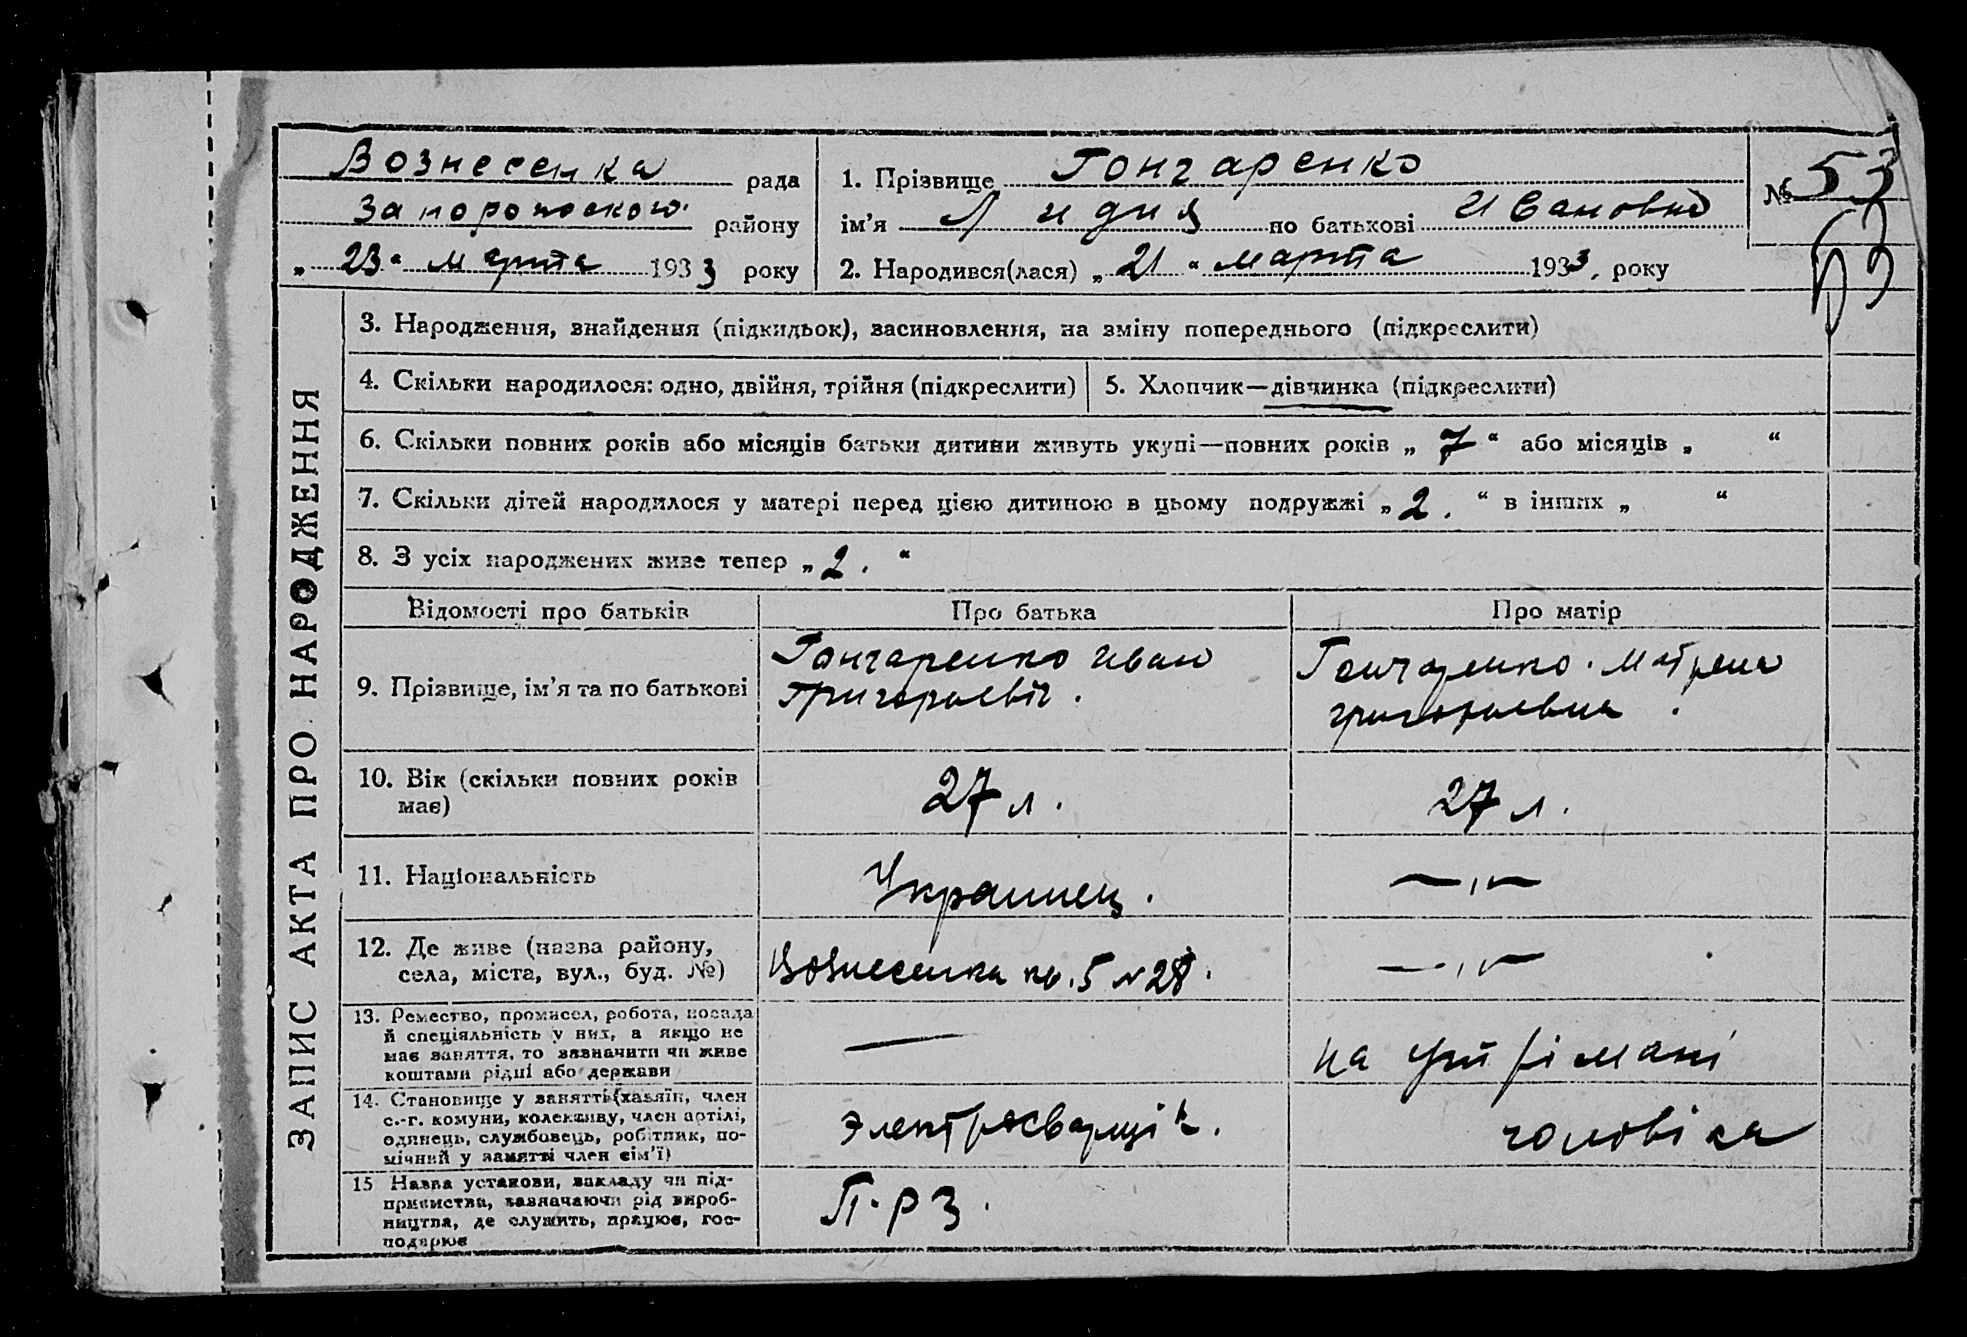 Вознесенка рада
Запорожского району
„23“ марта 1933 року
1. Прізвище Гончаренко
ім’я Лидия по батькові Ивановна
2. Народився(лася) „21“ марта 1933. року
№ 53
53
ЗАПИС АКТА ПРО НАРОДЖЕННЯ
3. Народження, знайдення (підкидьок), засиновлення, на зміну попереднього (підкреслити)
4. Скільки народилося: одно, двійня, трійня (підкреслити)
5. Хлопчик—дівчинка (підкреслити)
6. Скільки повних років або місяців батьки дитини живуть укупі—повних років „7“ або місяців „ “
7. Скільки дітей народилося у матері перед цією дитиною в цьому подружжі „2.“ в інших „ “
8. З усіх народжених живе тепер „2.“
Відомості про батьків
Про батька
Про матір
9. Прізвище, ім’я та по батькові
Гончаренко Иван
Григорьевіч.
Гончаренко. Матрена
Григорьевна.
10. Вік (скільки повних років
має)
27 л.
27 л.
11. Національність
Украинец.
—„—
12. Де живе (назва району,
села, міста, вул., буд. №)
Вознесенка кв. 5 №28.
—„—
13. Ремество, промисел, робота, посада
й спеціяльність у них, а якщо не
має заняття, то зазначити чи живе
коштами рідні або держави
—
на утрімані
14. Становище у занятті (хазяїн, член
с.-г. комуни, колективу, член артілі,
одинець, службовець, робітник, по-
мічний у занятті член сім’ї)
электросварщік.
чоловіка
15 Назва установи, закладу чи під-
приємства, зазначаючи рід вироб-
ництва, де служить, працює, гос-
подарює
П.РЗ.